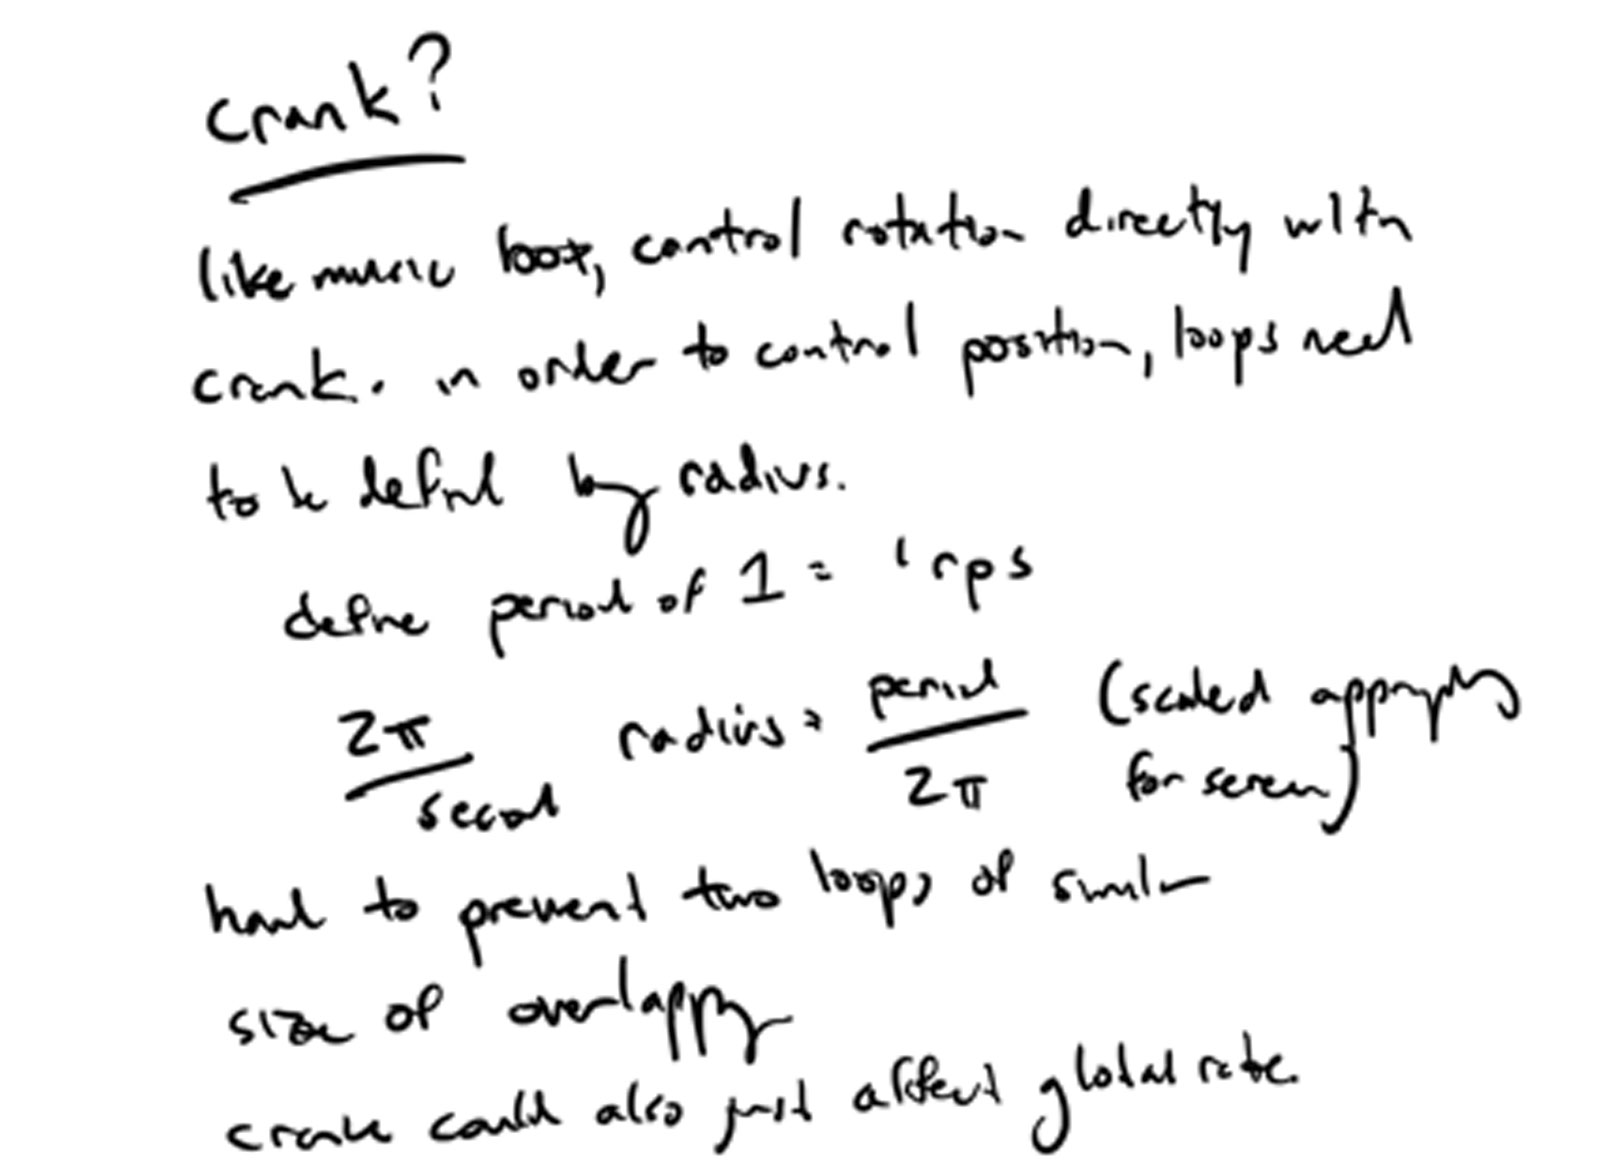 crank?
like music box, control rotation directly with
crank. in order to control position, loops need
to be defined by radius.
define period of 1 = 1 rps
2π / second radius = period / 2π (scaled appropriately
for screen)
hard to prevent two loops of similar
size of overlapping
crank could also just affect global rate.